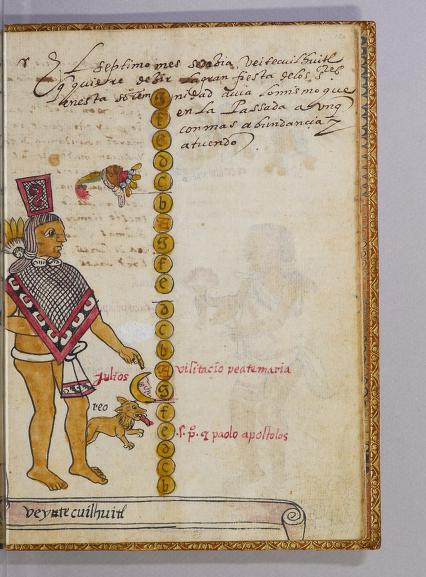 El septimo mes se dezia Veitecuilhuitl
q quiere dezir la gran fiesta delos
enesta solemnidad avia lo mismo que
en la Passada a unq
con mas abundancia
atuendo
g
f
e
d
c
b
a
g
f
e
d
c
b
julios
a visitacio beatemaria
g
reo
f
e s. p. q paolo apostolos
d
c
b
veytecuilhuitl